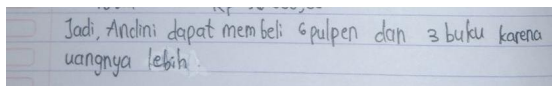 Jadi, Andini dapat membeli 6 pulpen dan 3 buku karena
uangnya lebih.